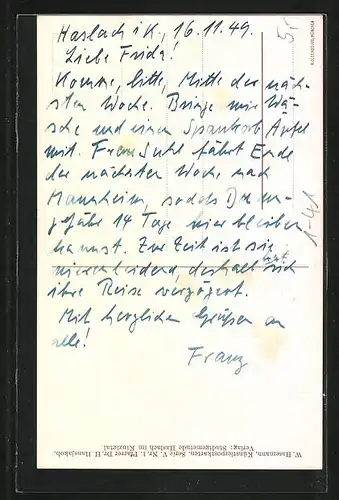 Haslach i K., 16.11.49.
Liebe Frida!
Komme, bitte, Mitte der näch-
sten Woche. Bringe mir Wä-
sche und einen Spankorb Äpfel
mit. Frau Suhl fährt Ende
der nächsten Woche nach
Mannheim, sodaß Du un-
gefähr 14 Tage hier bleiben
kannst. Zur Zeit ist sie
nierenleidend, deshalb hat sich
ihre Reise verzögert.
Mit herzlichen Grüßen an
alle!
Franz
5,-
1-41
W. Hasemann, Künstlerpostkarten, Serie V, Nr. 1. Pfarrer Dr. H. Hansjakob.
Verlag: Stadtgemeinde Haslach im Kinzigtal.